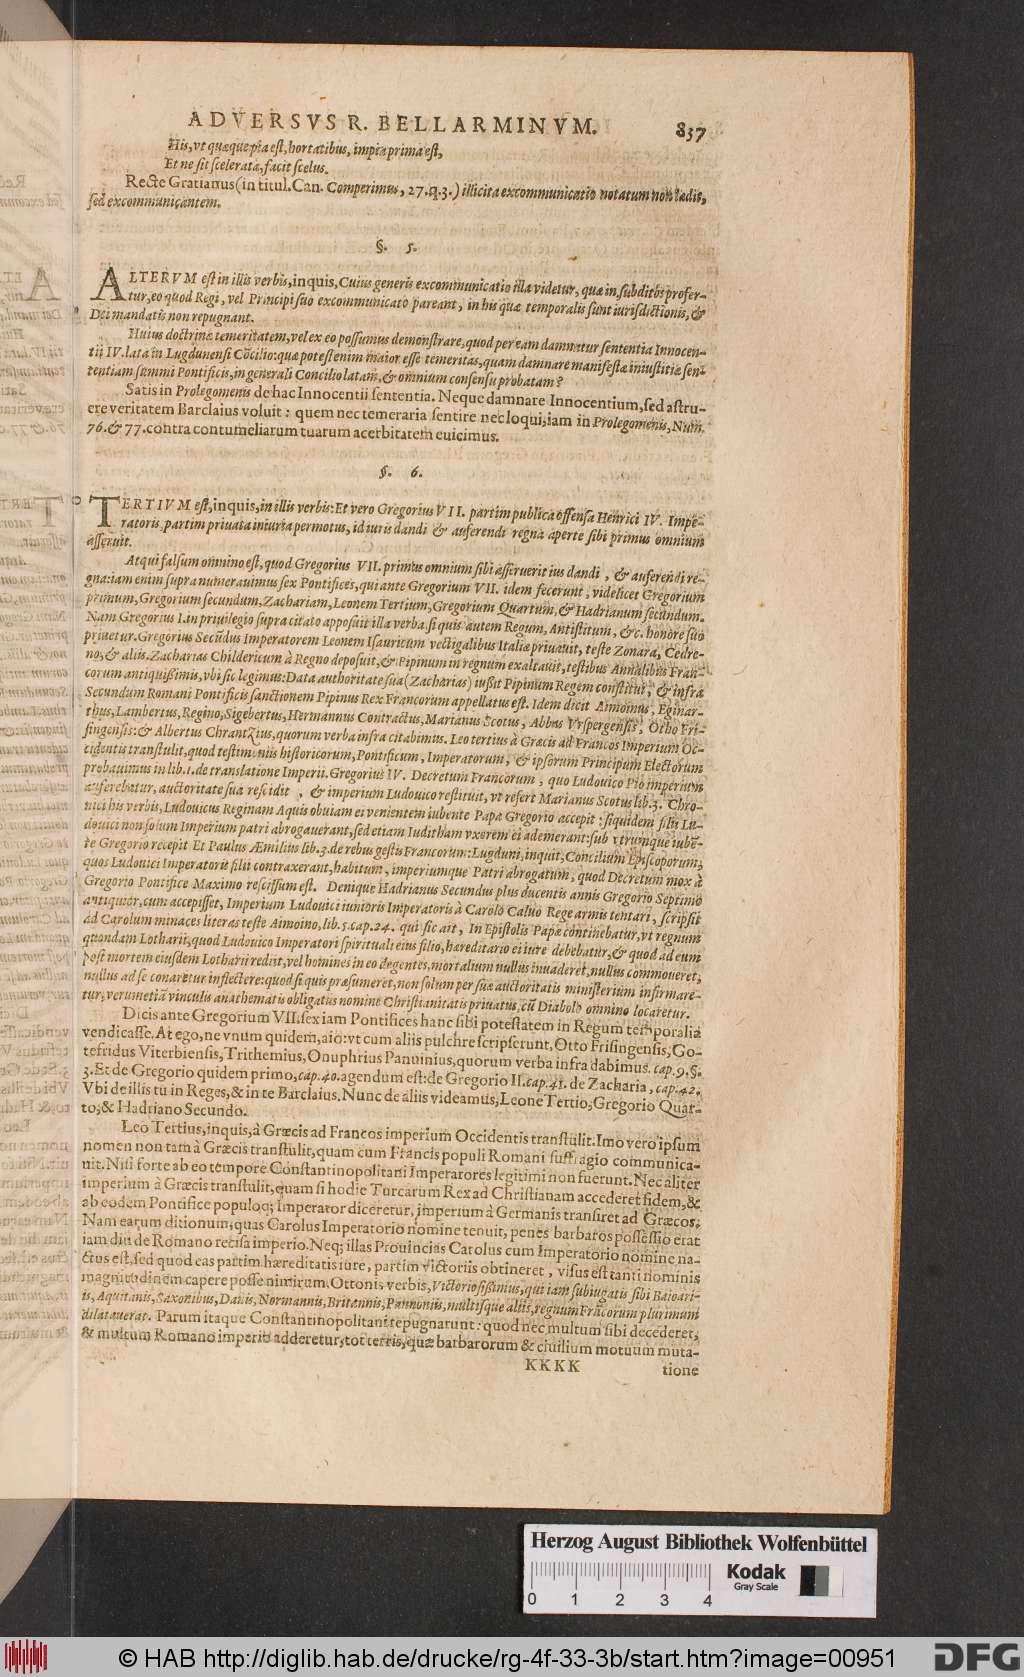 ADVERSVS R. BELLARMINVM. 837
His, vt quæque pia est, hortatibus, impia prima est,
Et ne sit scelerata, facit scelus.
Recte Gratianus (in titul. Can. Comperimus, 27. q. 3.) illicita excommunicatio notatum non lædit,
sed excommunicantem.
§. 5.
ALTERVM est in illis verbis, inquis, Cuius generis excommunicatio illa videtur, quæ in subditos profer-
tur, eo quod Regi, vel Principi suo excommunicato pareant, in his quæ temporalis sunt iurisdictionis, &
Dei mandatis non repugnant.
Huius doctrinæ temeritatem, vel ex eo possumus demonstrare, quod per eam damnatur sententia Innocen-
tii IV. lata in Lugdunensi Cōcilio: quæ potest enim maior esse temeritas, quam damnare manifestæ iniustitiæ sen-
tentiam summi Pontificis, in generali Concilio latam, & omnium consensu probatam?
Satis in Prolegomenis de hac Innocentii sententia. Neque damnare Innocentium, sed astru-
ere veritatem Barclaius voluit: quem nec temeraria sentire nec loqui, iam in Prolegomenis, Num.
76. & 77. contra contumeliarum tuarum acerbitatem euicimus.
§. 6.
TERTIVM est, inquis, in illis verbis: Et vero Gregorius VII. partim publica offensa Henrici IV. Impe-
ratoris, partim priuata iniuria permotus, id iuris dandi & auferendi regna aperte sibi primus omnium
asseruit.
Atqui falsum omnino est, quod Gregorius VII. primus omnium sibi asseruerit ius dandi, & auferendi re-
gna: iam enim supra numerauimus sex Pontifices, qui ante Gregorium VII. idem fecerunt, videlicet Gregorium
primum, Gregorium secundum, Zachariam, Leonem Tertium, Gregorium Quartum, & Hadrianum secundum.
Nam Gregorius I. in priuilegio supra citato apposuit illa verba. si quis autem Regum, Antistitum, &c. honore suo
priuetur. Gregorius Secūdus Imperatorem Leonem Isauricum vectigalibus Italiæ priuauit, teste Zonara, Cedre-
no, & aliis. Zacharias Childericum à Regno deposuit, & Pipinum in regnum exaltauit, testibus Annalibus Fran-
corum antiquissimis, vbi sic legimus: Data authoritate sua (Zacharias) iussit Pipinum Regem constitui, & infra
Secundum Romani Pontificis sanctionem Pipinus Rex Francorum appellatus est. Idem dicit Aimoinus, Eginar-
thus, Lambertus, Regino, Sigebertus, Hermannus Contractus, Marianus Scotus, Abbas Vrspergensis, Otho Fri-
singensis: & Albertus Chrantzius, quorum verba infra citabimus. Leo tertius à Græcis ad Francos Imperium Oc-
cidentis transtulit, quod testimoniis historicorum, Pontificum, Imperatorum, & ipsorum Principum Electorum
probauimus in lib. 1. de translatione Imperii. Gregorius IV. Decretum Francorum, quo Ludouico Pio imperium
auferebatur, auctoritate sua rescidit, & imperium Ludouico restituit, vt refert Marianus Scotus lib. 3. Chro-
nici his verbis, Ludouicus Reginam Aquis obuiam ei venientem iubente Papa Gregorio accepit: siquidem filii Lu-
douici non solum Imperium patri abrogauerant, sed etiam Iuditham vxorem ei ademerant: sub vtrumque iubē-
te Gregorio recepit Et Paulus Æmilius lib. 3. de rebus gestis Francorum: Lugduni, inquit, Concilium Episcoporum,
quos Ludouici Imperatoris filii contraxerant, habitum, imperiumque Patri abrogatum, quod Decretum mox à
Gregorio Pontifice Maximo rescissum est. Denique Hadrianus Secundus plus ducentis annis Gregorio Septimo
antiquior, cum accepisset, Imperium Ludouici iunioris Imperatoris à Carolo Caluo Rege armis tentari, scripsit
ad Carolum minaces literas teste Aimoino, lib. 5. cap. 24. qui sic ait, In Epistolis Papæ continebatur, vt regnum
quondam Lotharii, quod Ludouico Imperatori spirituali eius filio, hæreditario ei iure debebatur, & quod ad eum
post mortem eiusdem Lotharii rediit, vel homines in eo degentes, mortalium nullus inuaderet, nullus commoueret,
nullus ad se conaretur inflectere: quod si quis præsumeret, non solum per suæ auctoritatis ministerium infirmare-
tur, verumetiā vinculis anathematis obligatus nomine Christianitatis priuatus, cū Diabolo omnino locaretur.
Dicis ante Gregorium VII. sex iam Pontifices hanc sibi potestatem in Regum temporalia
vendicasse. At ego, ne vnum quidem, aio: vt cum aliis pulchre scripserunt, Otto Frisingensis, Go-
tefridus Viterbiensis, Trithemius, Onuphrius Panuinius, quorum verba infra dabimus. cap. 9. §.
3. Et de Gregorio quidem primo, cap. 40. agendum est: de Gregorio II. cap. 41. de Zacharia, cap. 42.
Vbi de illis tu in Reges, & in te Barclaius. Nunc de aliis videamus, Leone Tertio, Gregorio Quar-
to, & Hadriano Secundo.
Leo Tertius, inquis, à Græcis ad Francos imperium Occidentis transtulit. Imo vero ipsum
nomen non tam à Græcis transtulit, quam cum Francis populi Romani suffragio communica-
uit. Nisi forte ab eo tempore Constantinopolitani Imperatores legitimi non fuerunt. Nec aliter
imperium à Græcis transtulit, quam si hodie Turcarum Rex ad Christianam accederet fidem, &
ab eodem Pontifice populoq; Imperator diceretur, imperium à Germanis transiret ad Græcos.
Nam earum ditionum, quas Carolus Imperatorio nomine tenuit, penes barbaros possessio erat
iam diu de Romano recisa imperio. Neq; illas Prouincias Carolus cum Imperatorio nomine na-
ctus est, sed quod eas partim hæreditatis iure, partim victoriis obtineret, visus est tanti nominis
magnitudinem capere posse nimirum. Ottonis verbis, Victoriosissimus, qui iam subiugatis sibi Baioari-
is, Aquitanis, Saxonibus, Danis, Normannis, Britannis, Pannoniis, multisque aliis, regnum Francorum plurimum
dilatauerat. Parum itaque Constantinopolitani repugnarunt: quod nec multum sibi decederet,
& multum Romano imperio adderetur, tot terris, quæ barbarorum & ciuilium motuum muta-
KKKK tione
Herzog August Bibliothek Wolfenbüttel
Kodak
Gray Scale
0 1 2 3 4
© HAB http://diglib.hab.de/drucke/rg-4f-33-3b/start.htm?image=00951
DFG